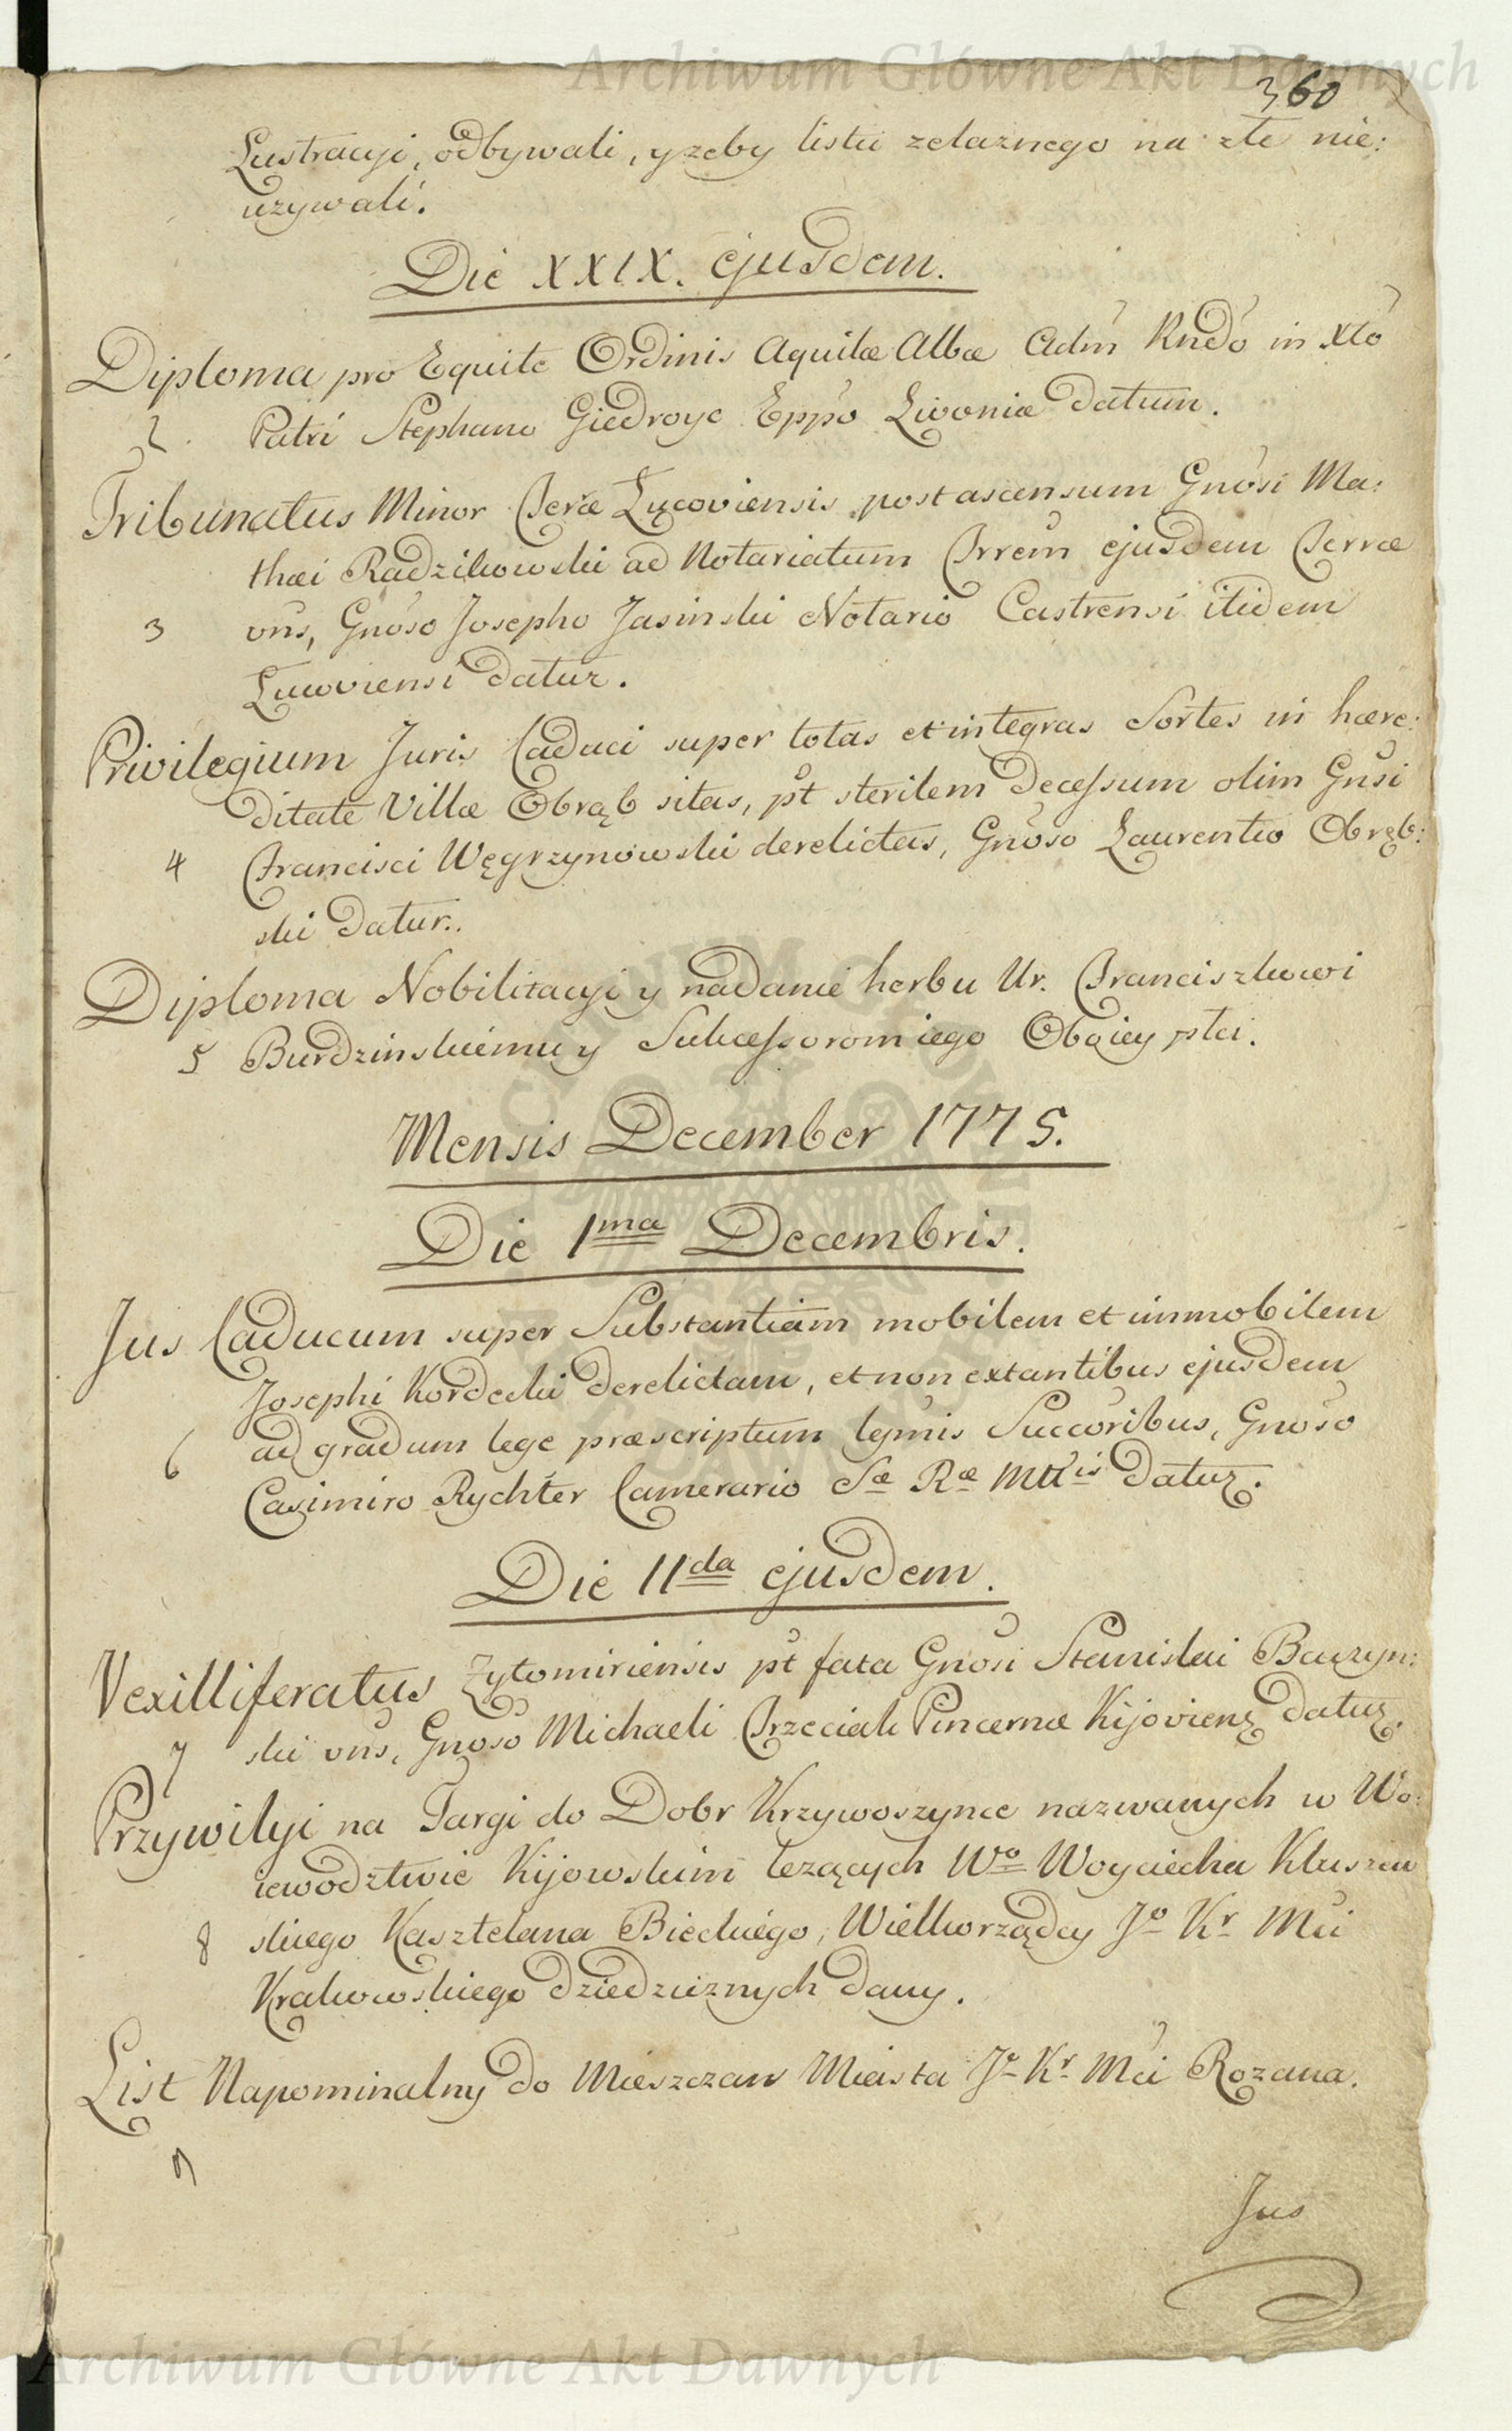 Archiwum Główne Akt Dawnych
360
Lustracyi, odbywali, y zeby listu zelaznego na złe nie:
uzywali.
Die XXIX. ejusdem.
Diploma pro Equite Ordinis Aquilæ Albæ Adm Rndo in Xto
2. Patri Stephano Giedroyc Eppo Livoniæ datum.
Tribunatus Minor Terræ Łucoviensis post ascensum Gnosi Ma:
thæi Radzikowski ad Notariatum Trrem ejusdem Terræ
3 vns, Gnoso Josepho Jasinski Notario Castrensi itidem
Lucoviensi datur.
Privilegium Juris Caduci super totas et integras Sortes in hære:
ditate Villæ Obrąb sitas, pt sterilem decessum olim Gnsi
4 Francisci Węgrzynowski derelictas, Gnoso Laurentio Obręb:
ski datur.
Diploma Nobilitacyi y nadanie herbu Ur. Franciszkowi
5 Burdzinskiemu y Sukcessorom iego Oboiey płci.
Mensis December 1775.
Die 1ma Decembris.
Jus Caducum super Substantiam mobilem et immobilem
Josephi Kordecki derelictam, et non extantibus ejusdem
6 ad gradum lege præscriptum lgmis Succoribus, Gnoso
Casimiro Rychter Camerario Sæ Ræ Mttis datur.
Die 11da ejusdem.
Vexilliferatus Zytomiriensis pt fata Gnosi Stanislai Baczyn:
7 ski vns, Gnoso Michaeli Trzeciak Pincernæ Kijoviens datur.
Przywilyi na Targi do Dobr Krzywoszynce nazwanych w Wo:
iewodztwie Kijowskim lezących Wo Woyciecha Kluszew
8 skiego Kasztelana Bieckiego, Wielkorządcy Jo Kr Mci
Krakowskiego dziedzicznych dany.
List Napominalny do Mieszczan Miasta Jo Kr Mci Rozana.
9
Jus
Archiwum Główne Akt Dawnych